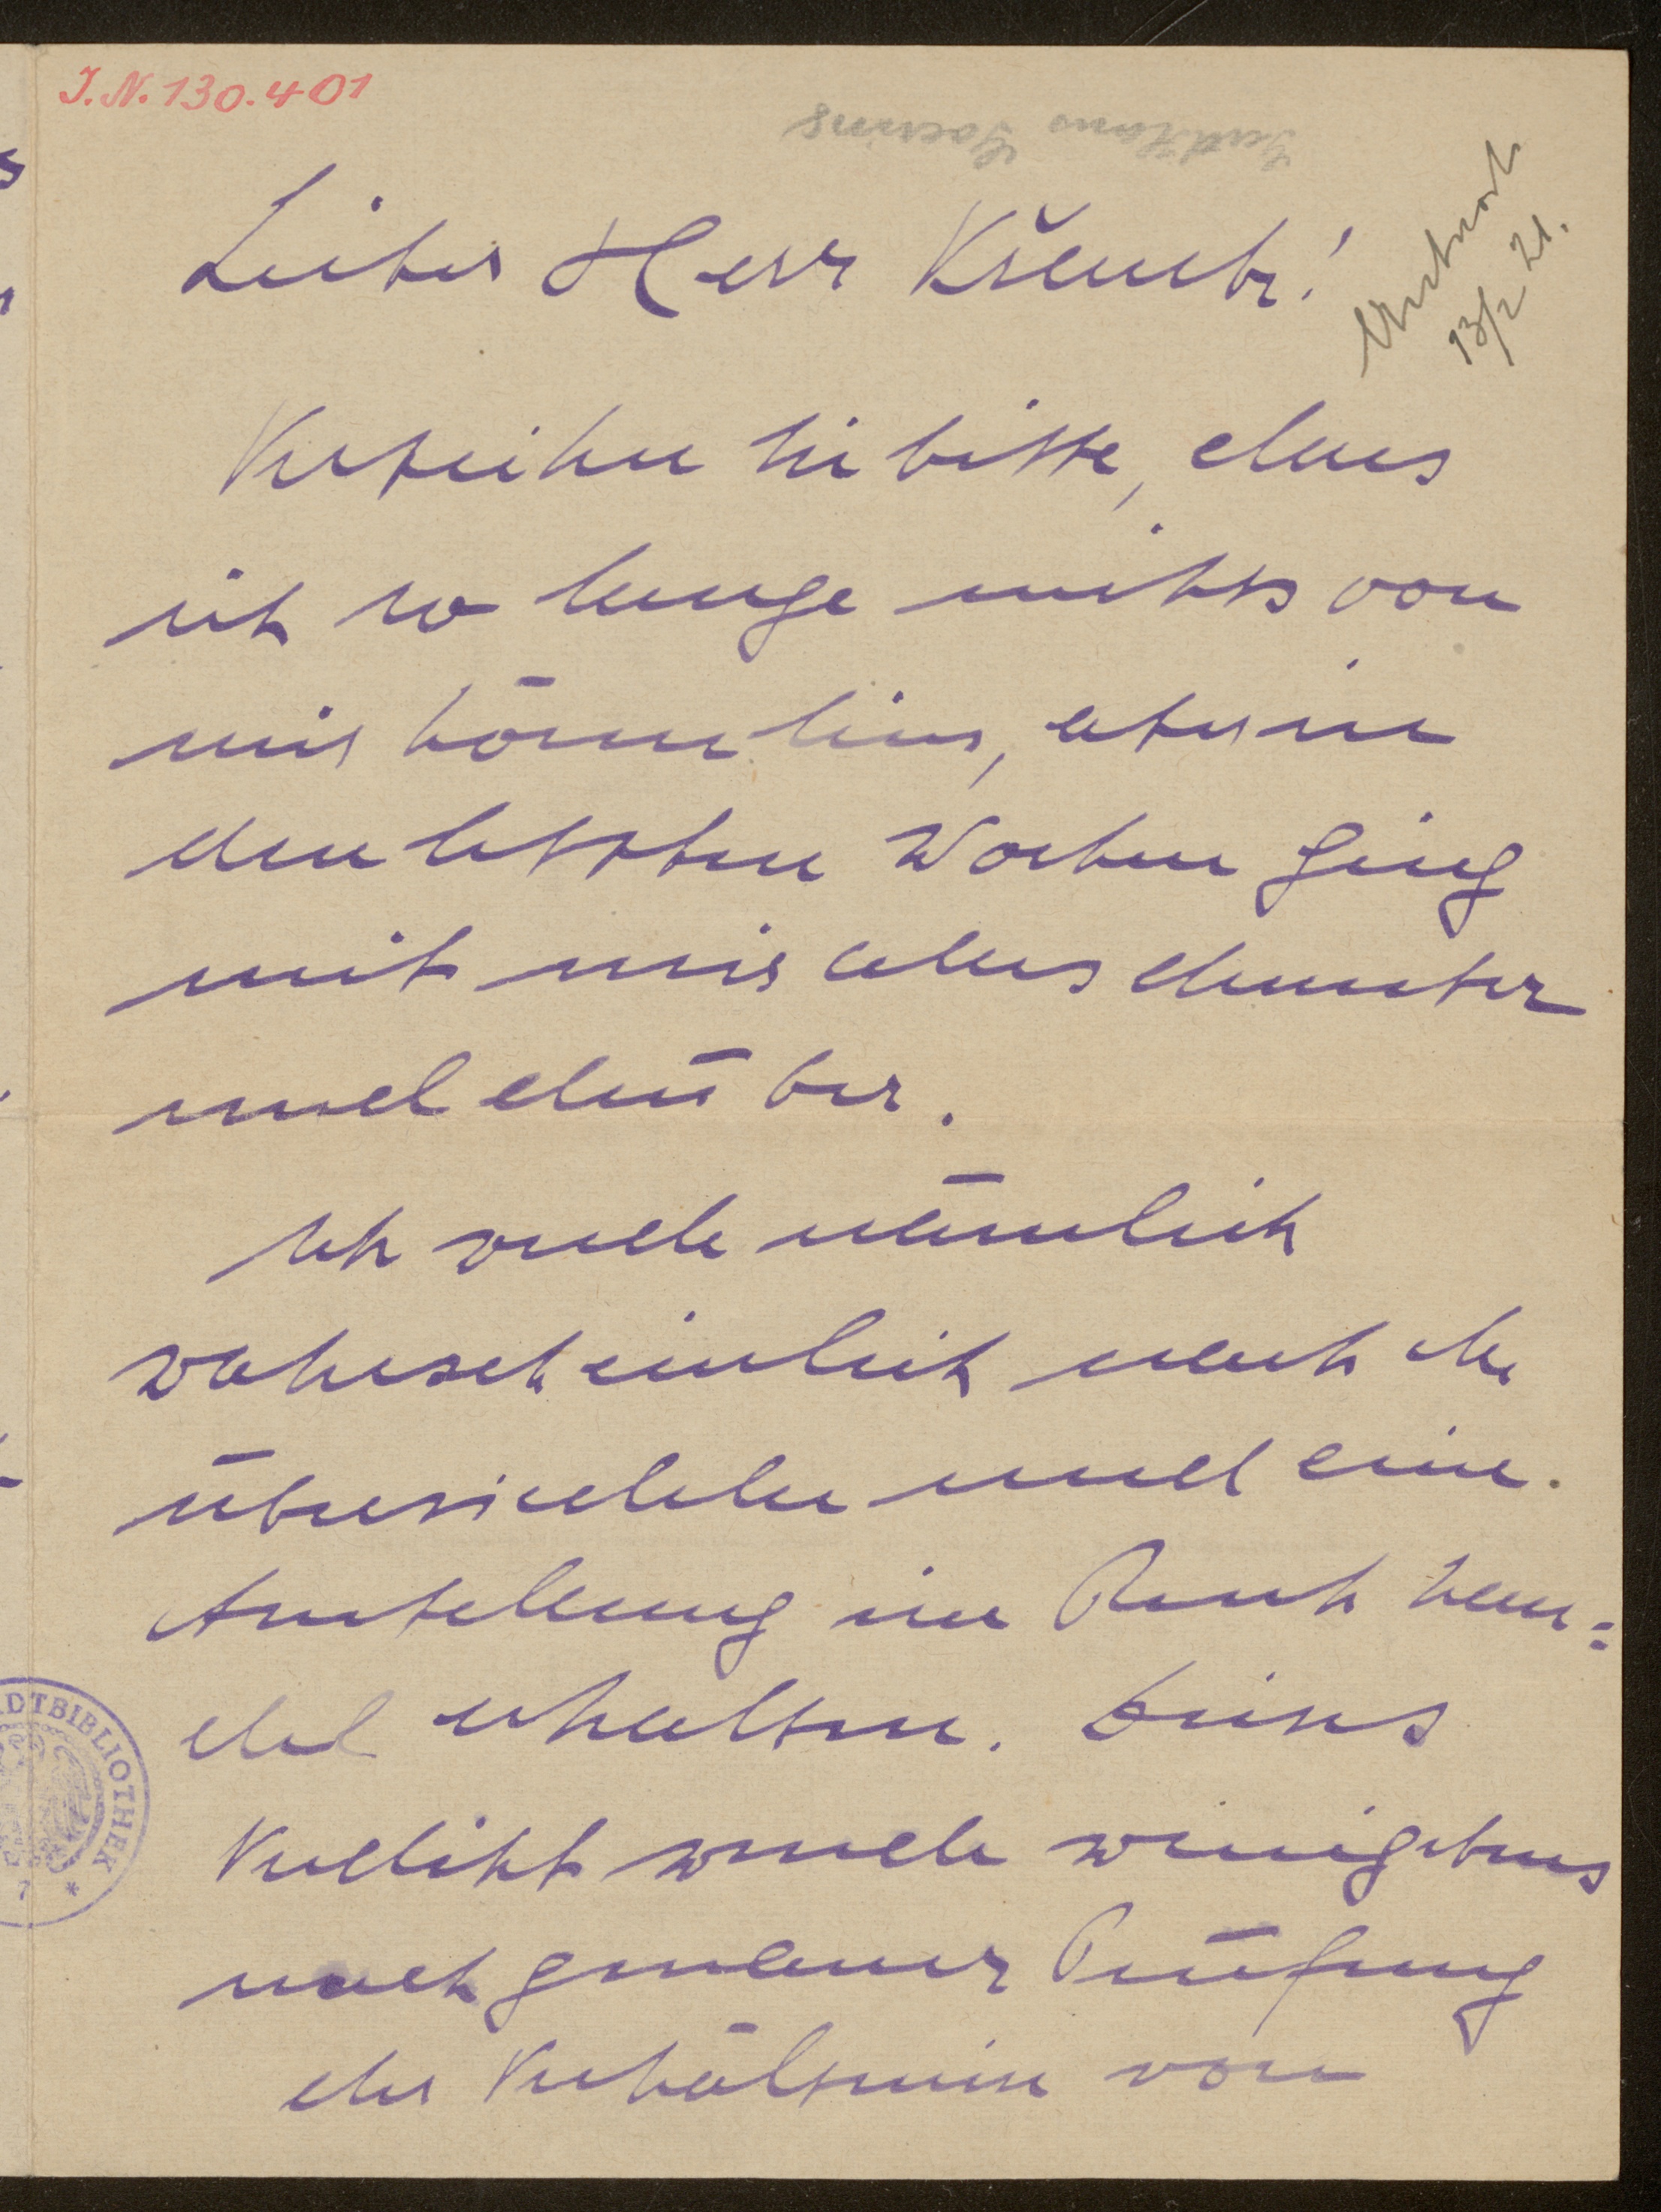 I.N. 130.401
Lieber Herr Křenek!
Antwort
13/2 21.
Verzeihen Sie bitte, dass
ich so lange nichts von
mir hören liess, aber in
den letzten Wochen ging
mit mir alles drunter
und drüber.
Ich werde nämlich
wahrscheinlich nach
übersiedeln und eine
Anstellung im Buch han=
del erhalten. Dieses
Verdikt wurde wenigstens
nach genauer Prüfung
der Verhältnisse von
STADTBIBLIOTHEK